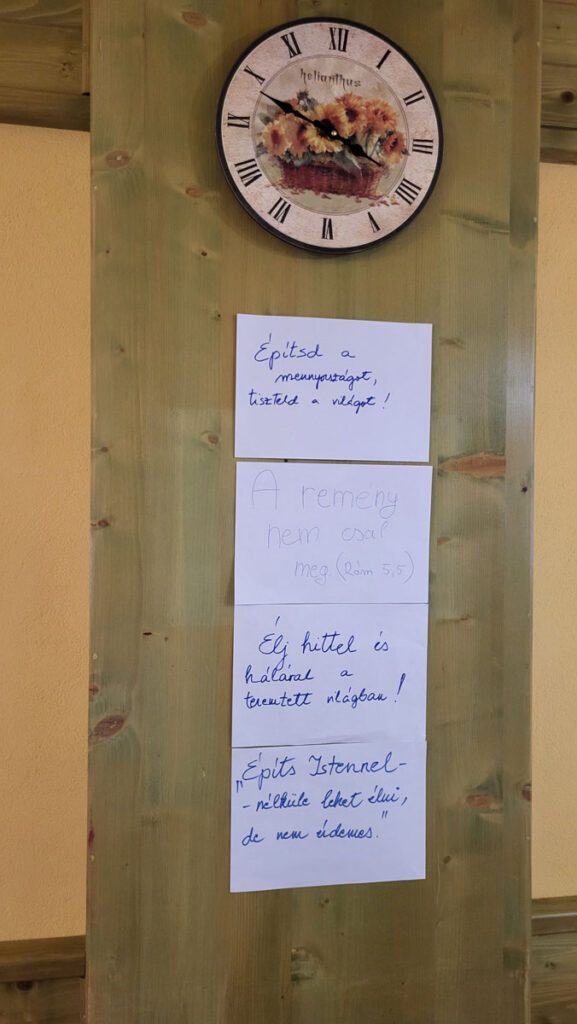 XII
I
II
III
IIII
V
VI
VII
VIII
IX
X
XI
helianthus
Építsd a
mennyországot,
tiszteld a világot!
A remény
nem csal
meg. (Róm 5,5)
Élj hittel és
hálával a
teremtett világban!
"Építs Istennel-
-nélküle lehet élni,
de nem érdemes."